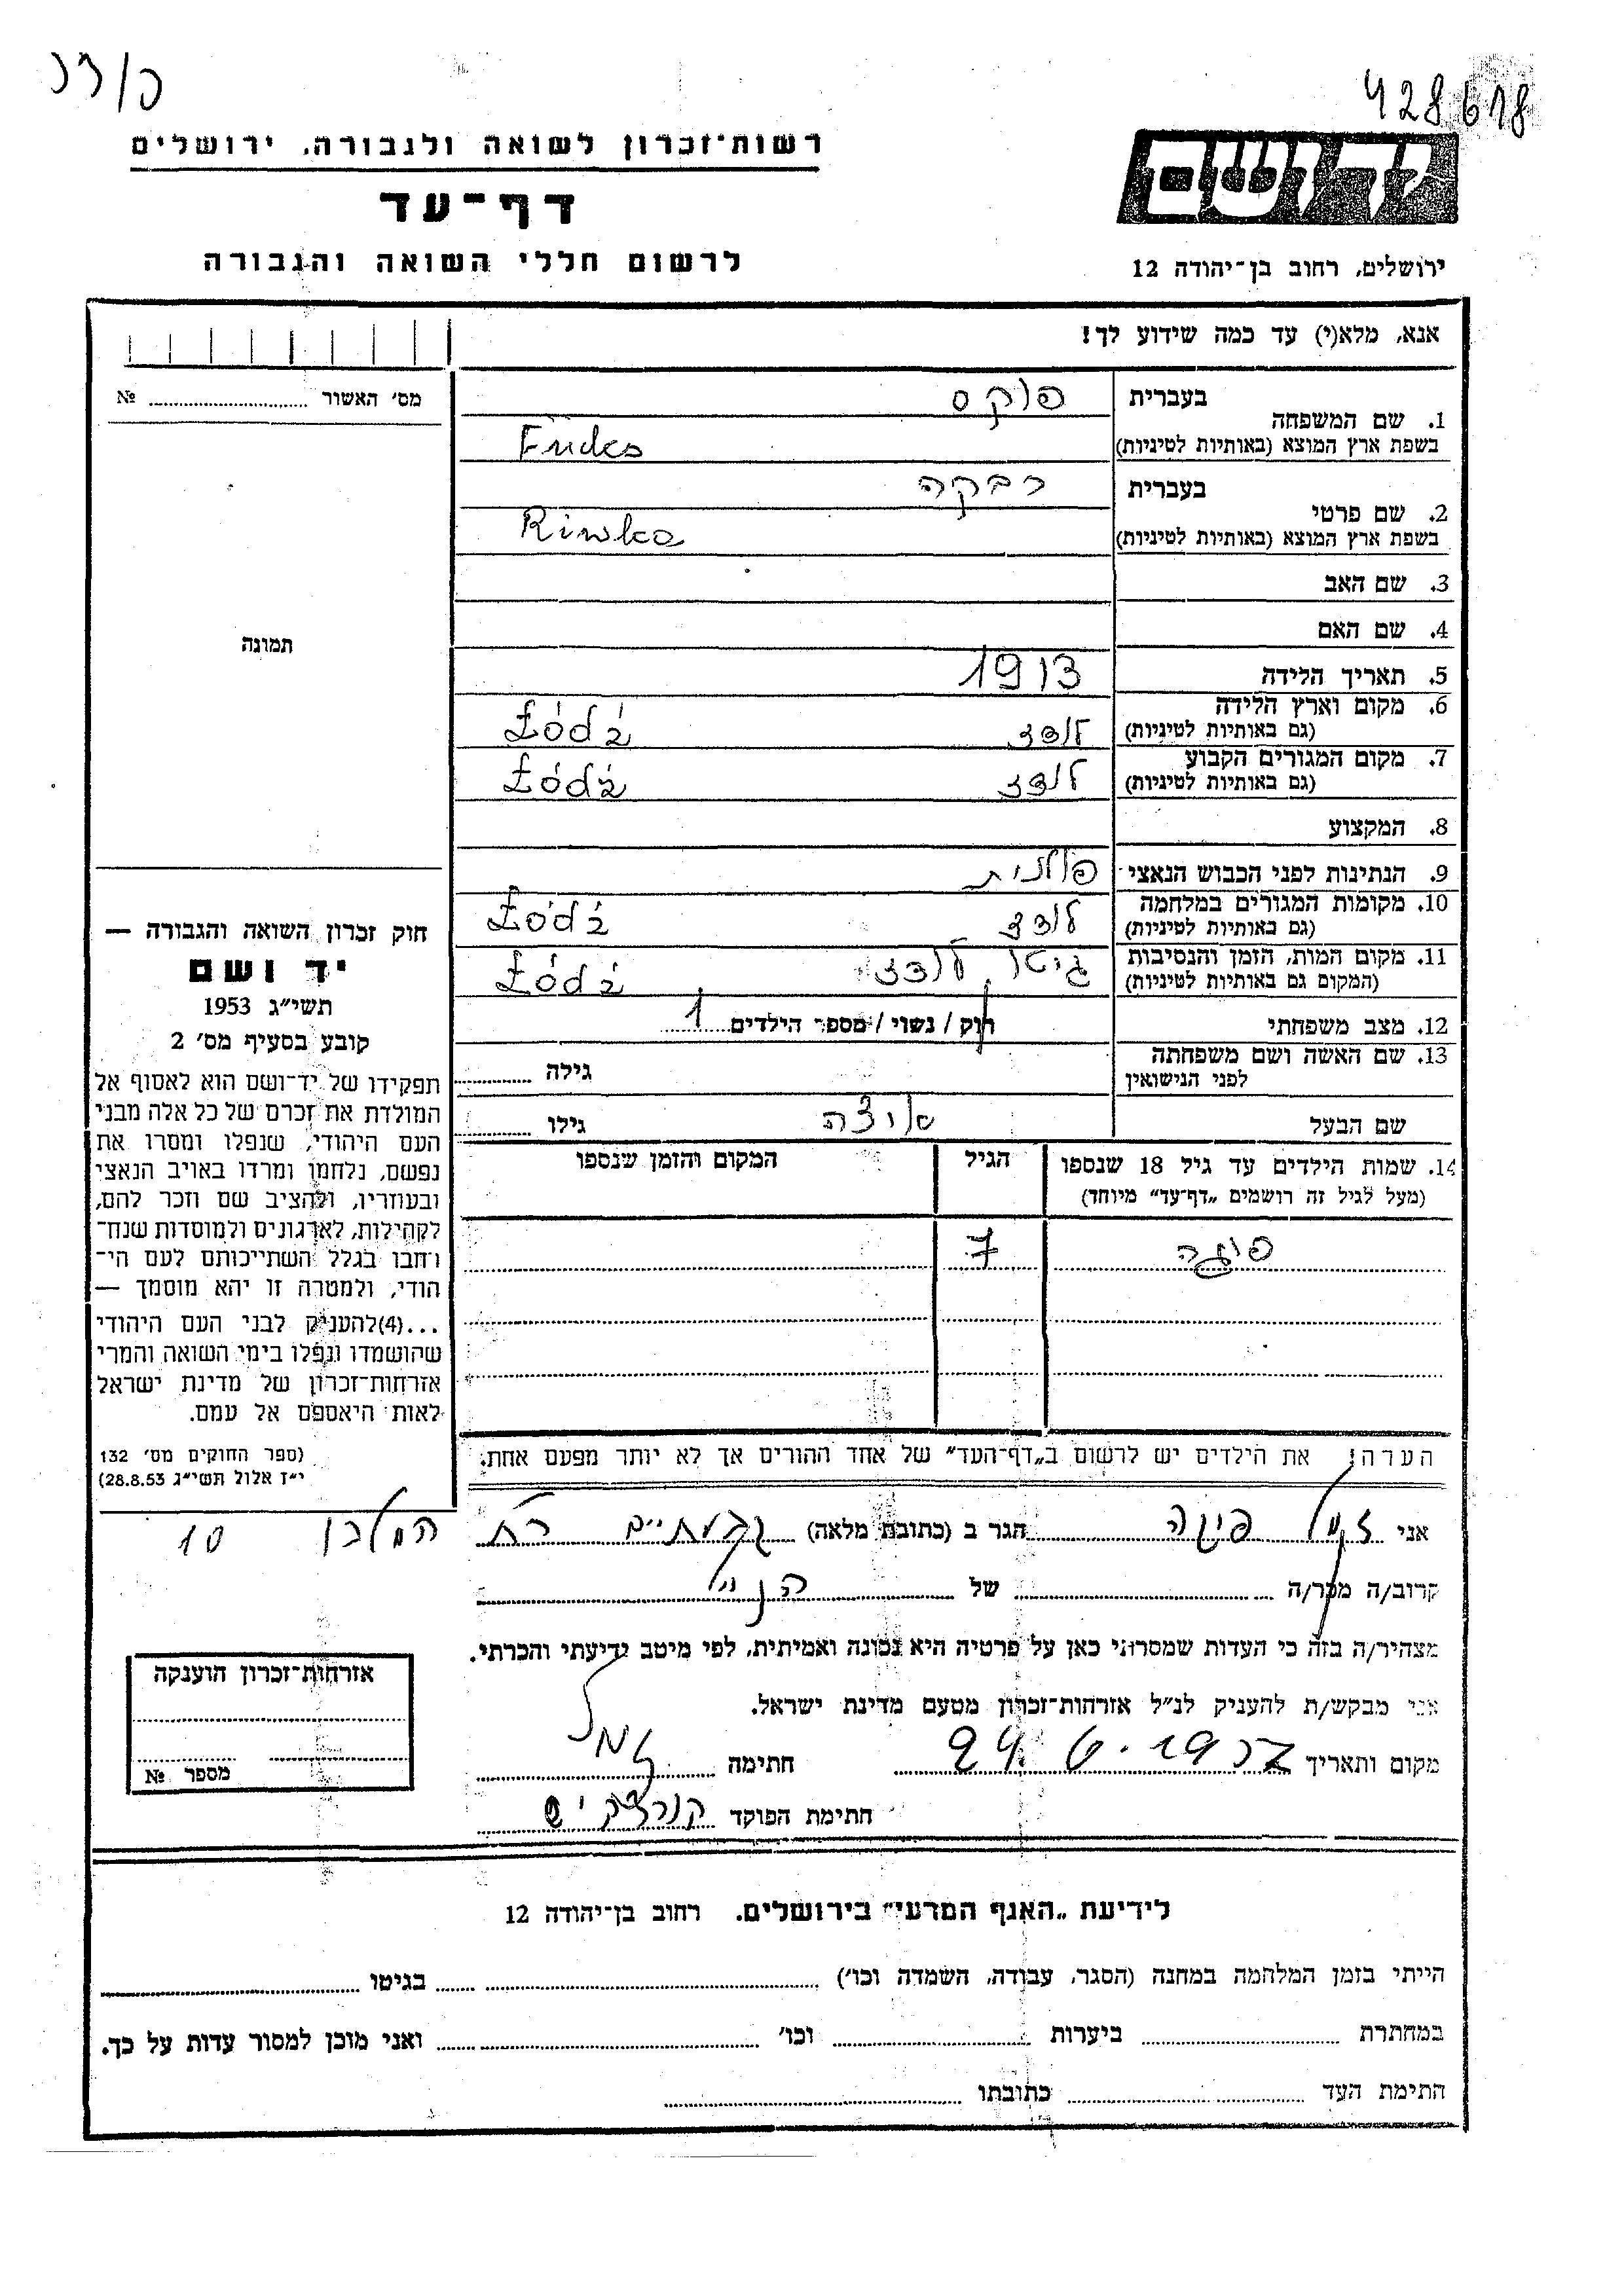 428618
רשות־זכרון לשואה ולגבורה, ירושלים
יד ושם
דף־עד
לרשום חללי השואה והגבורה
ירושלים, רחוב בן־יהודה 12
אנא, מלא(י) עד כמה שידוע לך!
מס׳ האשור № 
1. שם המשפחה
בעברית פוקס
בשפת ארץ המוצא (באותיות לטיניות) Fuks
2. שם פרטי
בעברית רבקה
בשפת ארץ המוצא (באותיות לטיניות) Riwka
3. שם האב
4. שם האם
תמונה
5. תאריך הלידה 1913
6. מקום וארץ הלידה
(גם באותיות לטיניות) לודז Łódź
7. מקום המגורים הקבוע
(גם באותיות לטיניות) לודז Łódź
8. המקצוע
9. הנתינות לפני הכבוש הנאצי פולנית
10. מקומות המגורים במלחמה
(גם באותיות לטיניות) לודז Łódź
11. מקום המות, הזמן והנסיבות
(המקום גם באותיות לטיניות) גיטו לודז Łódź
12. מצב משפחתי רוק / נשוי / מספר הילדים 1
13. שם האשה ושם משפחתה
לפני הנישואין גילה
שם הבעל גילו
14. שמות הילדים עד גיל 18 שנספו הגיל המקום והזמן שנספו
(מעל לגיל זה רושמים „דף־עד״ מיוחד)
7
הערה! את הילדים יש לרשום ב„דף־העד״ של אחד ההורים אך לא יותר מפעם אחת.
חוק זכרון השואה והגבורה —
יד ושם
תשי״ג 1953
קובע בסעיף מס׳ 2
תפקידו של יד־ושם הוא לאסוף אל
המולדת את זכרם של כל אלה מבני
העם היהודי, שנפלו ומסרו את
נפשם, נלחמו ומרדו באויב הנאצי
ובעוזריו, ולהציב שם וזכר להם,
לקהילות, לארגונים ולמוסדות שנח־
רחבו בגלל השתייכותם לעם הי־
הודי, ולמטרה זו יהא מוסמך —
...(4)להעניק לבני העם היהודי
שהושמדו ונפלו בימי השואה והמרי
אזרחות־זכרון של מדינת ישראל
לאות היאספם אל עמם.
(ספר החוקים מס׳ 132
י״ז אלול תשי״ג 28.8.53)
אני הגר ב (כתובת מלאה) גבעתיים רח המלבן 10
קרוב/ה מכר/ה של הנ״ל
מצהיר/ה בזה כי העדות שמסרתי כאן על פרטיה היא נכונה ואמיתית, לפי מיטב ידיעתי והכרתי.
אני מבקש/ת להעניק לנ״ל אזרחות־זכרון מטעם מדינת ישראל.
מקום ותאריך חתימה
חתימת הפוקד
אזרחות־זכרון הוענקה
מספר №
לידיעת „האגף המדעי״ בירושלים, רחוב בן־יהודה 12
הייתי בזמן המלחמה במחנה (הסגר, עבודה, השמדה וכו׳) בגיטו
במחתרת ביערות וכו׳ ואני מוכן למסור עדות על כך.
חתימת העד כתובתו